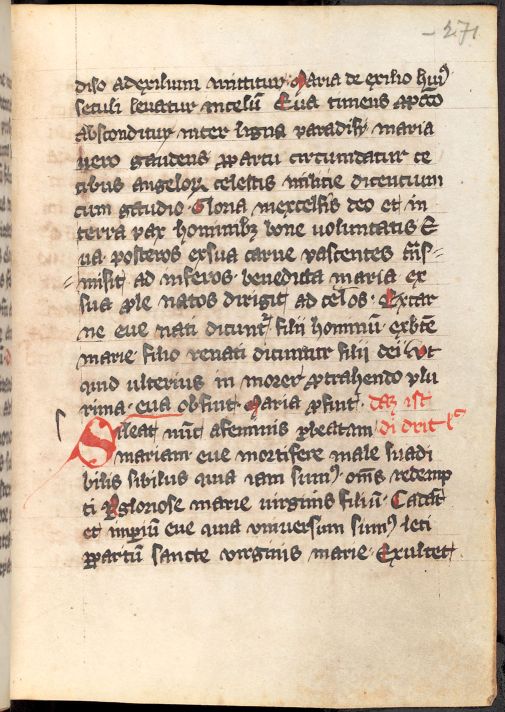 271
diso ad exilium mittitur. Maria de exilio huiꝰ
seculi leuatur in celū Eua timens a pctō
absconditur inter ligna paradisi maria
uero gaudens ꝓ partu circumdatur ce
tibus angeloꝝ celestis milicie dicentium
cum gaudio. Gloria in excelsis deo et in
terra pax hominibꝫ bone voluntatis E
ua posteros ex sua carne nascentes
misit ad inferos. benedicta maria ex
sua ꝓle natos dirigit ad celos. Ex car
ne eue nati dicunt᷑ filii hominū. ex bt̄e
marie filio renati dicuntur filii dei. Vt
quid ulterius in morer ꝓtrahendo plu
rima. eua obfuit. Maria ꝓfuit. daz ist
Sileat nūc a feminis ꝑ beatam di drit lc̄ꝰ
mariam eue mortifere male suadi
bilis sibilus quia iam sumꝰ. om̄s redemp
ti ꝑ gloriose marie virginis filiū. Cadat
et imꝑiū eue quia vniuersum sumꝰ leti
ꝑ partū sancte virginis marie. Exultet